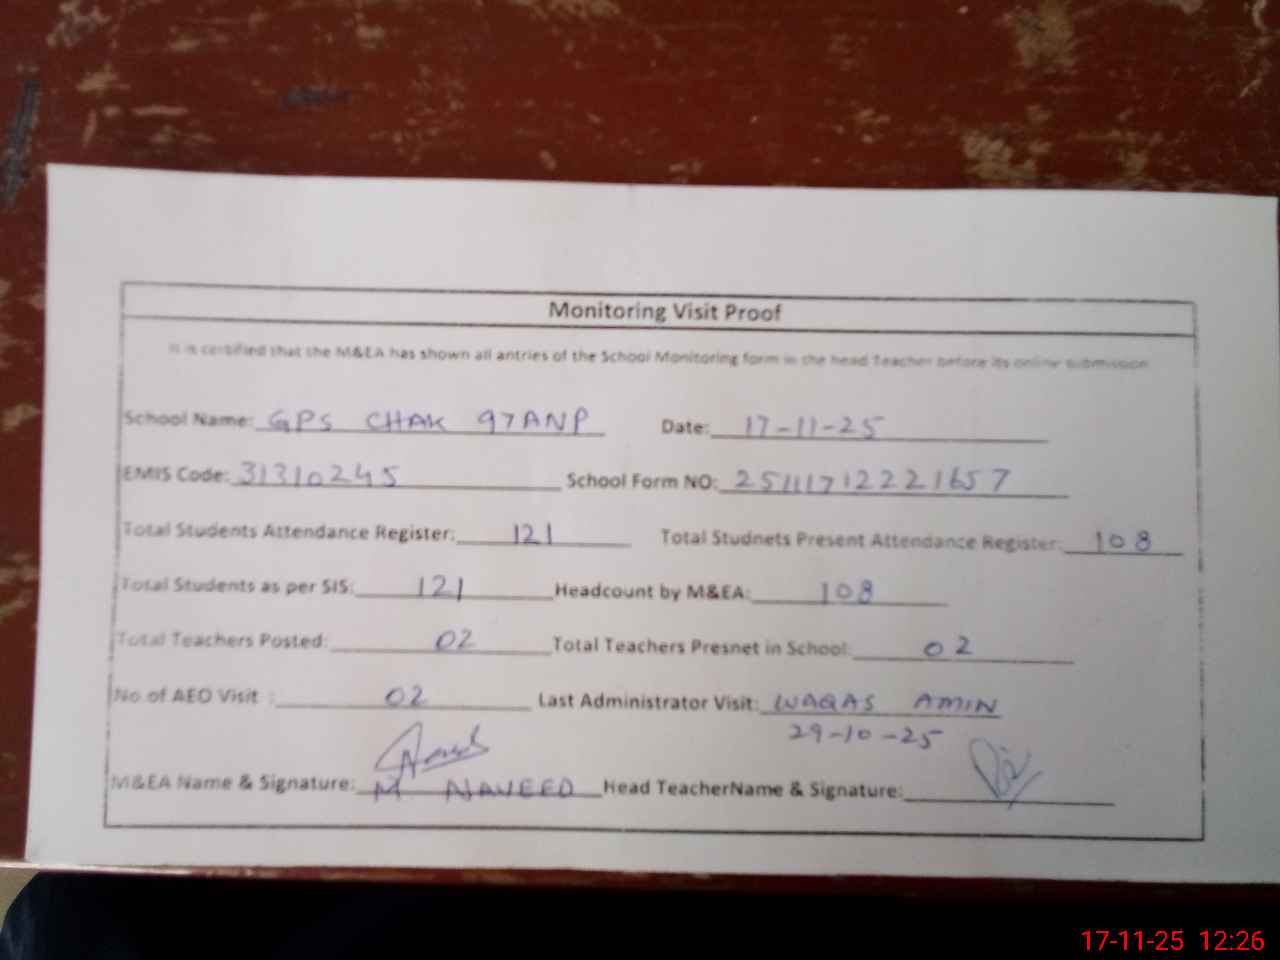 Monitoring Visit Proof
It is certified that the M&EA has shown all antries of the School Monitoring form in the head Teacher before its online submission
School Name: GPS CHAK 97ANP Date: 17-11-25
EMIS Code: 31310245 School Form NO: 25111712221657
Total Students Attendance Register: 121 Total Studnets Present Attendance Register: 108
Total Students as per SIS: 121 Headcount by M&EA: 108
Total Teachers Posted: 02 Total Teachers Presnet in School: 02
No of AEO Visit : 02 Last Administrator Visit: WAQAS AMIN
29-10-25
M&EA Name & Signature: M. NAVEED Head TeacherName & Signature:
17-11-25 12:26